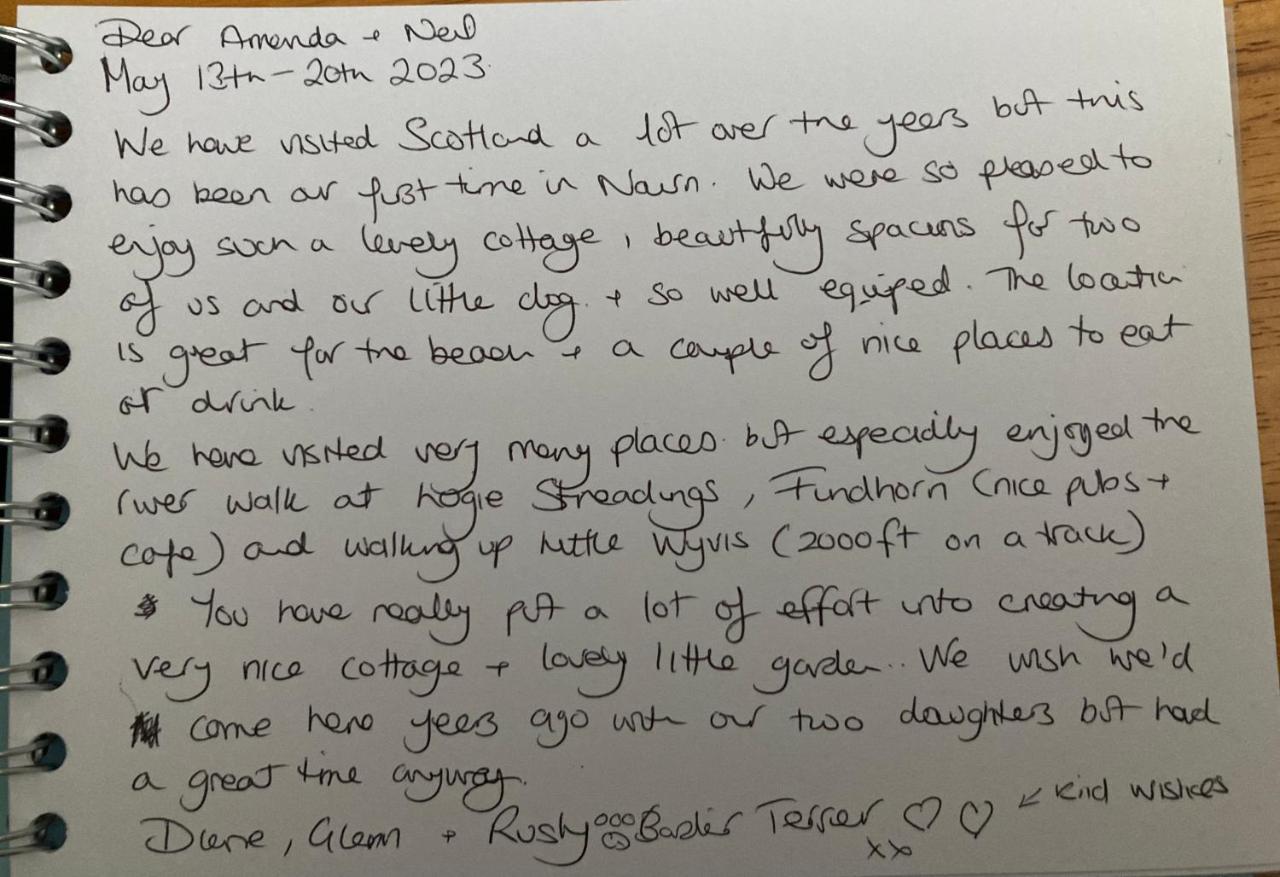 Dear Amanda + Neil
May 13th - 20th 2023.
We have visited Scotland a lot over the years but this
has been our first time in Nairn. We were so pleased to
enjoy such a lovely cottage, beautifully spacious for two
of us and our little dog. + so well equiped. The location
is great for the beach + a couple of nice places to eat
or drink.
We have visited very many places but especially enjoyed the
river walk at Logie Streadings, Findhorn (nice pubs +
cafe) and walking up little Wyvis (2000ft on a track)
You have really put a lot of effort into creating a
very nice cottage + lovely little garden.. We wish we'd
come here years ago with our two daughters but had
a great time anyway.
Diane, Glenn + Rusty Border Terrier ♡ ♡ ↙ Kind wishes
xx